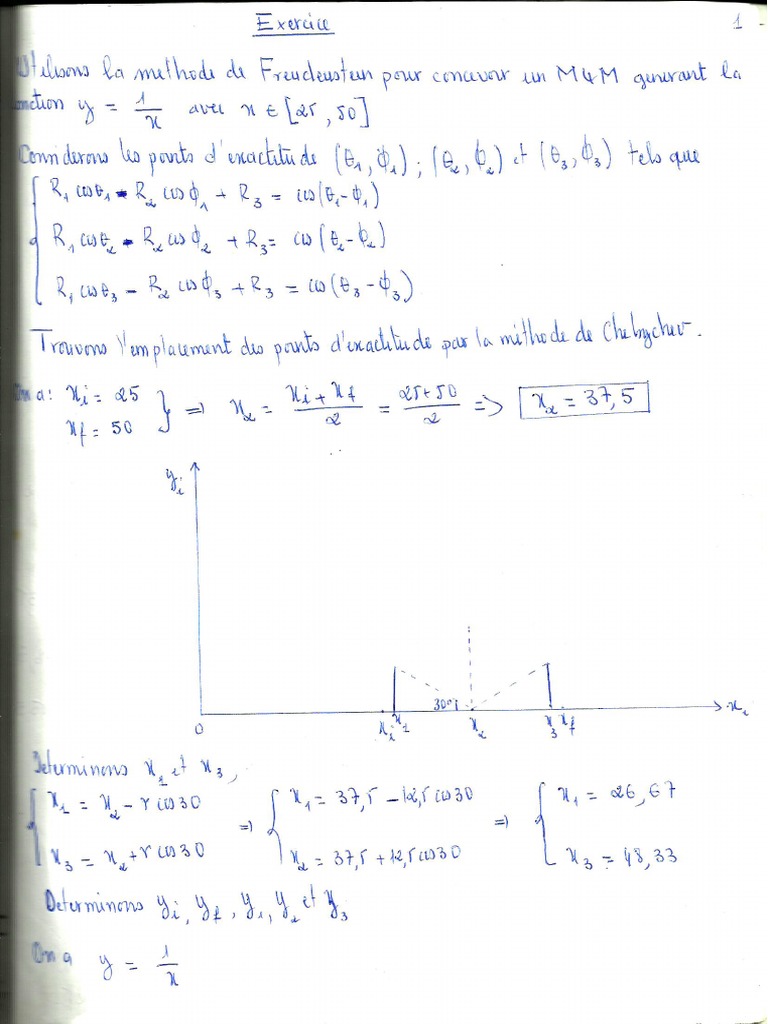 Exercice 1
Utilisons la methode de Freudenstein pour concevoir un M4M generant la
fonction y = 1/x avec x ∈ [25, 50]
Considerons les points d'exactitude (θ1, ϕ1) ; (θ2, ϕ2) et (θ3, ϕ3) tels que
R1 cosθ1 - R2 cosϕ1 + R3 = cos(θ1-ϕ1)
R1 cosθ2 - R2 cosϕ2 + R3 = cos(θ2-ϕ2)
R1 cosθ3 - R2 cosϕ3 + R3 = cos(θ3-ϕ3)
Trouvons l'emplacement des points d'exactitude par la méthode de Chebychev.
On a: xi = 25
xf = 50
⇒ x2 = (xi + xf)/2 = (25+50)/2 ⇒ x2 = 37,5
yi
30°
0 xi x1 x2 x3 xf xi
Determinons x1 et x3,
x1 = x2 - r cos30 ⇒ x1 = 37,5 - 12,5 cos30 ⇒ x1 = 26,67
x3 = x2 + r cos30 x2 = 37,5 + 12,5 cos30 x3 = 48,33
Determinons yi, yf, y1, y2 et y3
On a y = 1/x